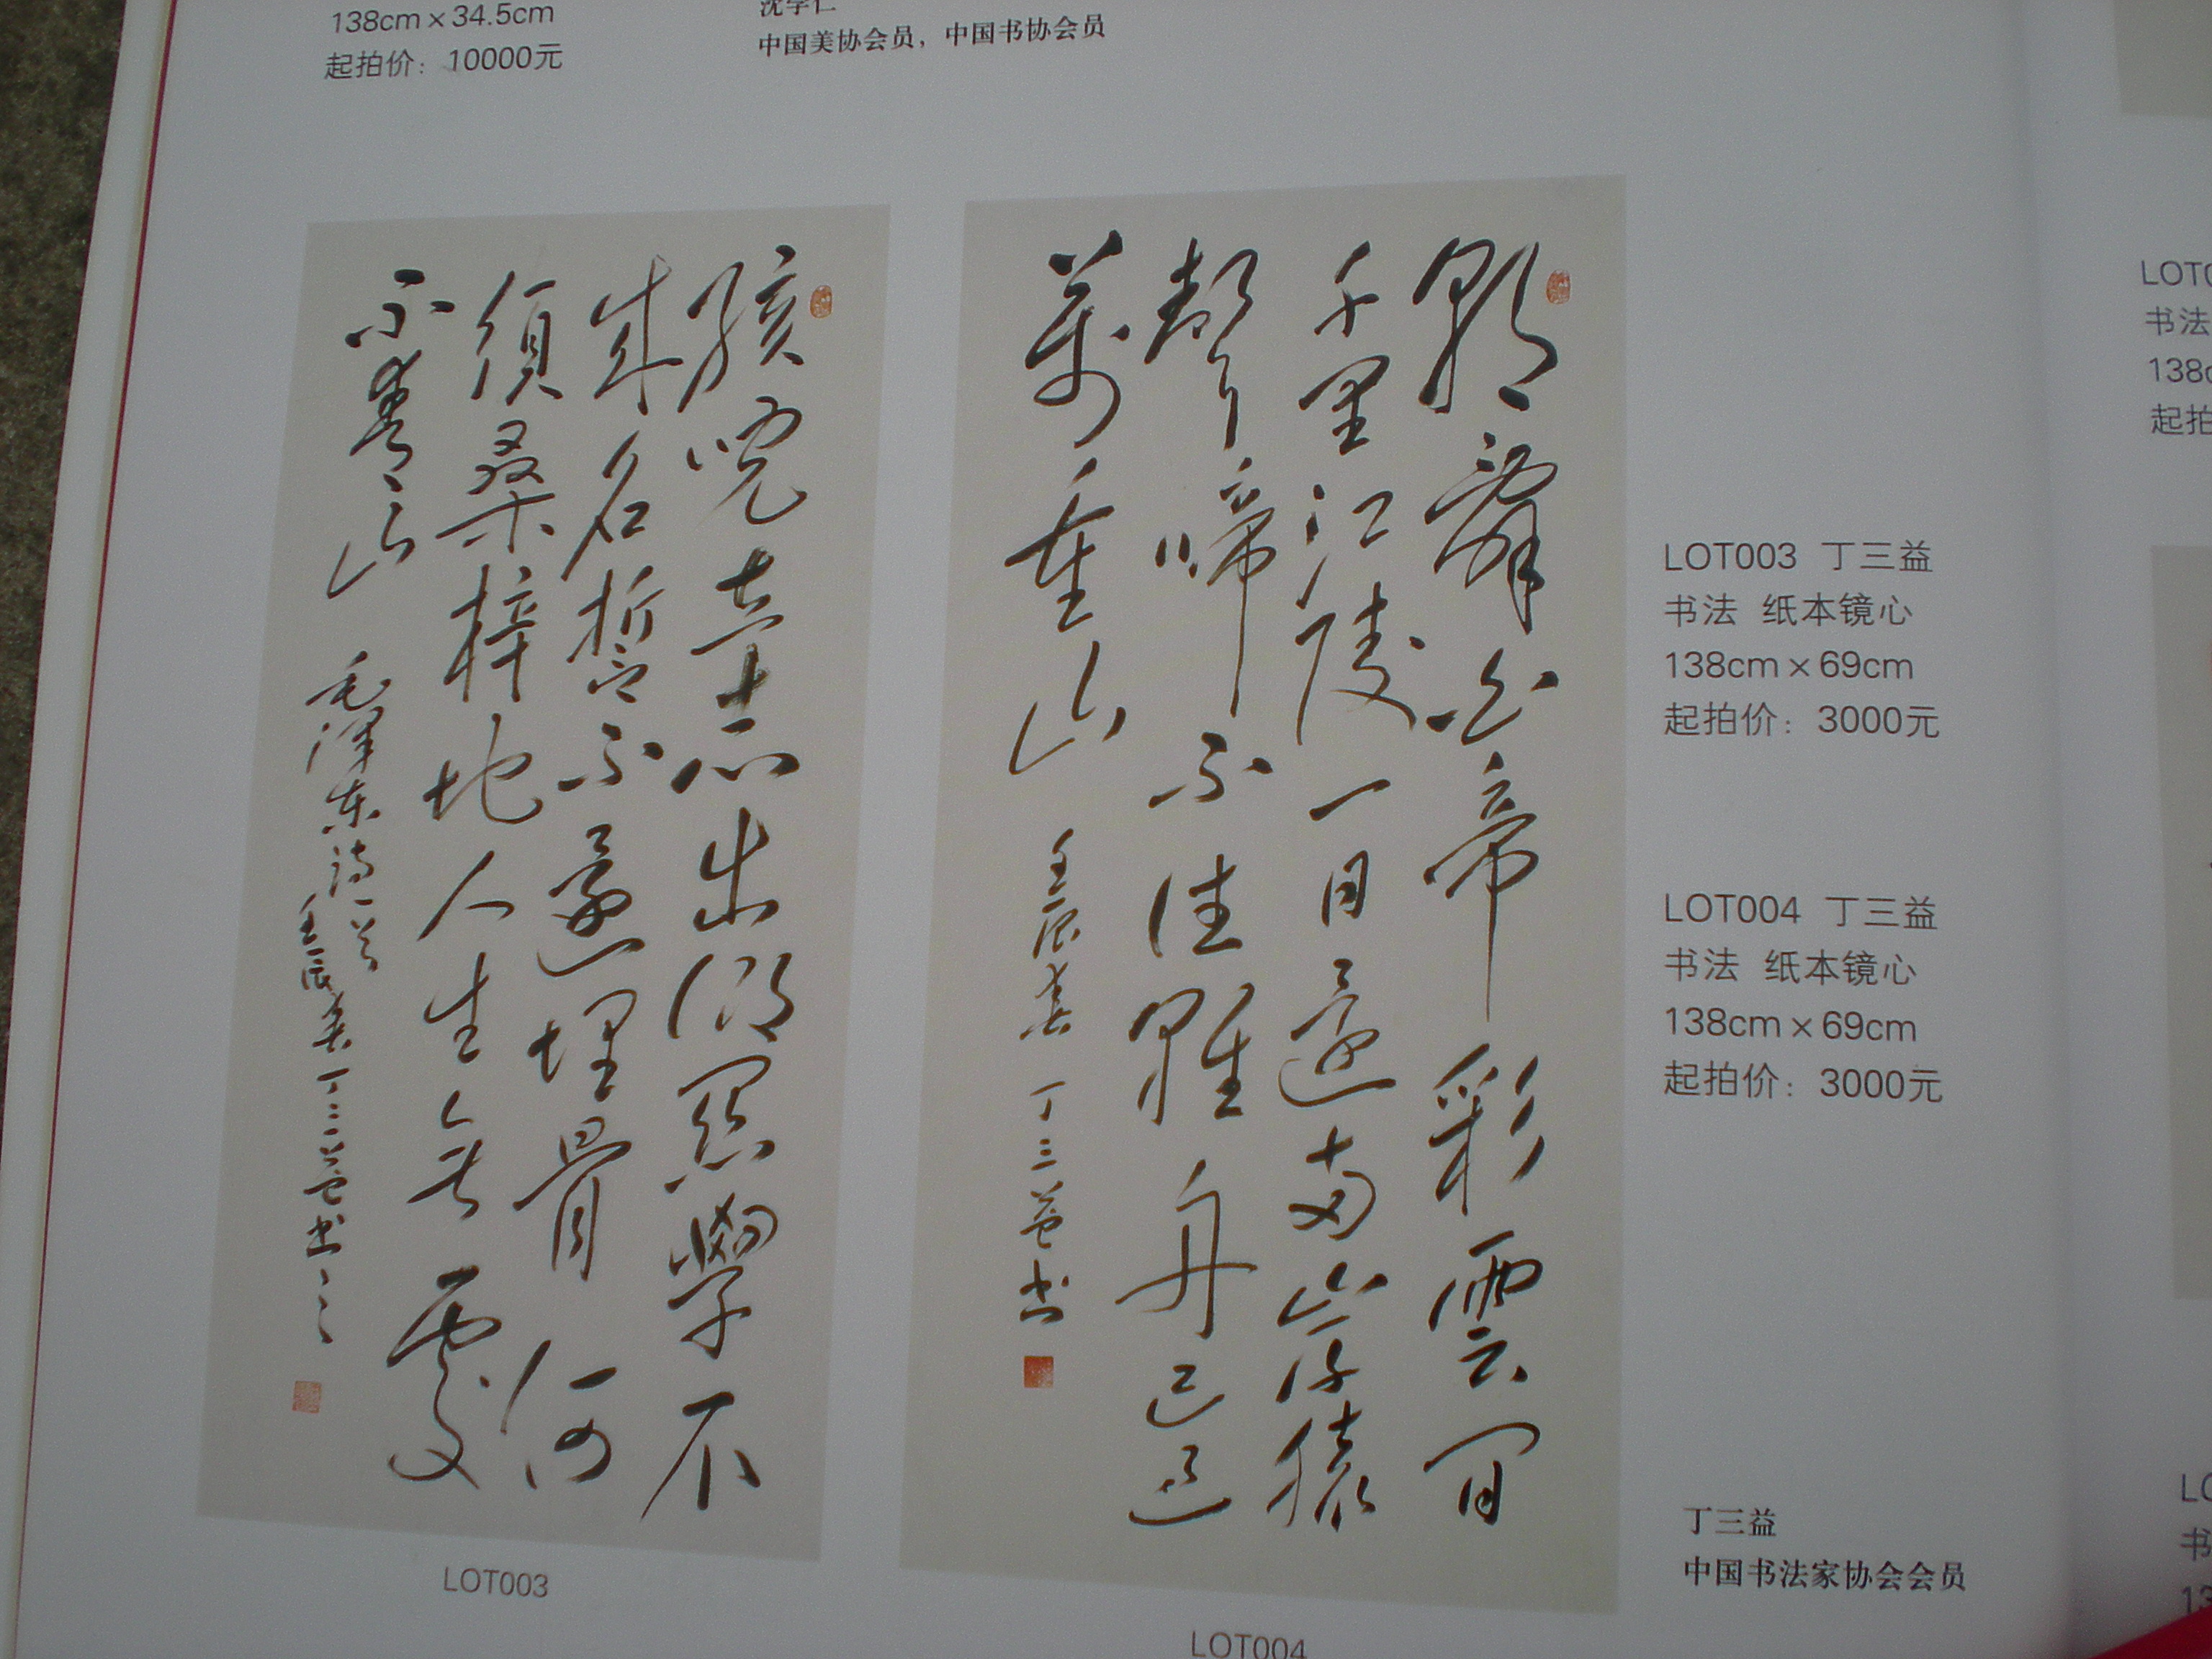 138cm×34.5cm
起拍价：10000元
沈学仁
中国美协会员，中国书协会员
孩兒立志出鄉關學不
成名誓不還埋骨何
須桑梓地人生無處
不青山
毛澤东詩一首
壬辰春丁三益书之
LOT003
朝辭白帝彩雲間
千里江陵一日還两岸猿
聲啼不住輕舟已過
萬重山
壬辰春 丁三益书
LOT004
LOT003 丁三益
书法 纸本镜心
138cm×69cm
起拍价：3000元
LOT004 丁三益
书法 纸本镜心
138cm×69cm
起拍价：3000元
丁三益
中国书法家协会会员
书法
起拍